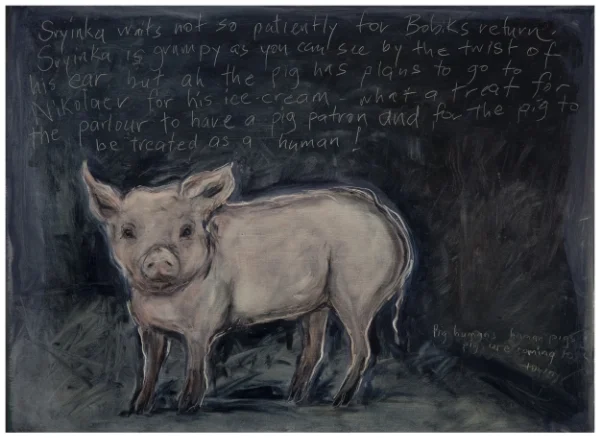 Svyinka waits not so patiently for Bobiks return.
Svyinka is grumpy as you can see by the twist of
his ear but ah the pig has plans to go to
Nikolaev for his ice-cream, what a treat for
the parlour to have a pig patron and for the pig to
be treated as a human!
Pig humans human pigs
pigs are coming to